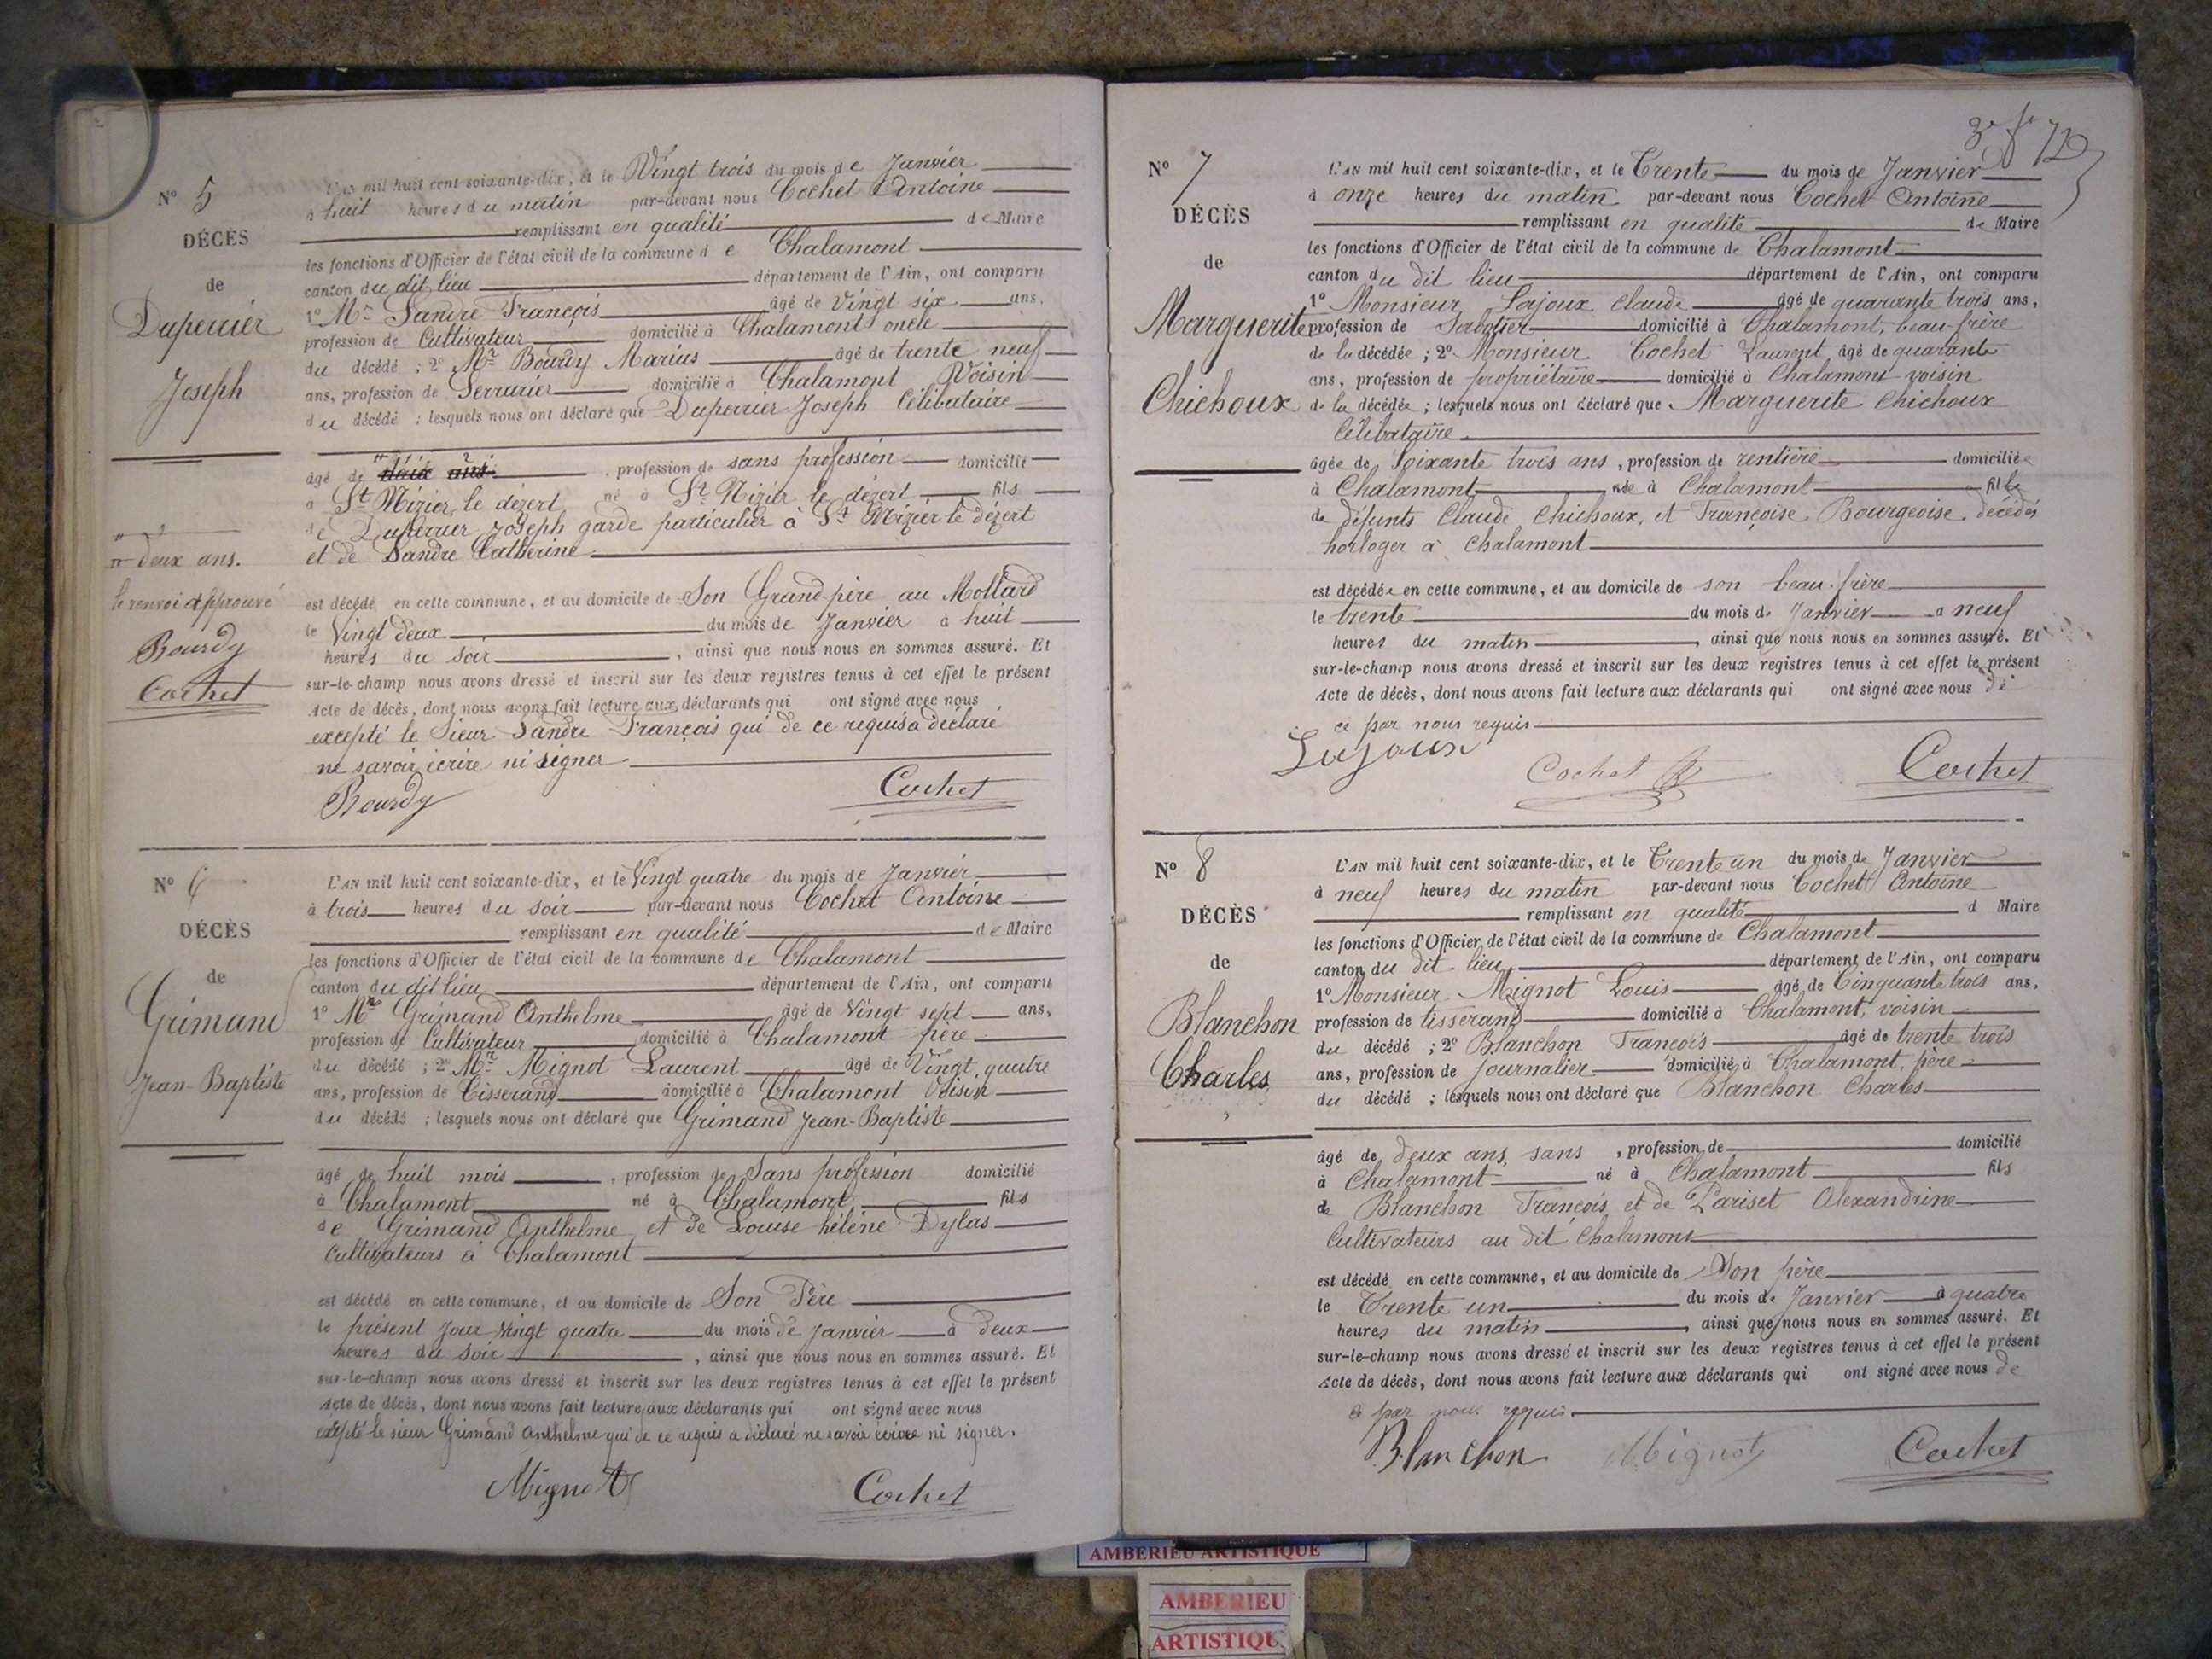 N° 5
DÉCÈS
de
Duperrier
Joseph
L'AN mil huit cent soixante-dix, et le Vingt trois du mois de Janvier
à huit heures du matin par-devant nous Cochet Antoine
remplissant en qualité de Maire
les fonctions d'Officier de l'état civil de la commune de Chalamont
canton du dit lieu département de l'Ain, ont comparu
1° Mr Sandre François âgé de Vingt six ans,
profession de Cultivateur domicilié à Chalamont oncle
du décédé ; 2° Mr Bourdy Marius âgé de trente neuf
ans, profession de Serrurier domicilié à Chalamont Voisin
du décédé ; lesquels nous ont déclaré que Duperrier Joseph Célibataire
âgé de , profession de sans profession domicilié
à St Nizier le dézert né à St Nizier le dézert fils
de Duperrier Joseph garde particulier à St Nizier le dézert
et de Sandre Catherine
deux ans.
le renvoi approuvé
Bourdy
Cochet
est décédé en cette commune, et au domicile de Son Grand père au Mollard
le Vingt deux du mois de Janvier à huit
heures du soir , ainsi que nous nous en sommes assuré. Et
sur-le-champ nous avons dressé et inscrit sur les deux registres tenus à cet effet le présent
Acte de décès, dont nous avons fait lecture aux déclarants qui ont signé avec nous
excepté le Sieur Sandre François qui de ce requis a déclaré
ne savoir écrire ni signer
Bourdy Cochet
N° 6
DÉCÈS
de
Grimand
Jean-Baptiste
L'AN mil huit cent soixante-dix, et le Vingt quatre du mois de Janvier
à trois heures du soir par-devant nous Cochet Antoine
remplissant en qualité de Maire
les fonctions d'Officier de l'état civil de la commune de Chalamont
canton du dit lieu département de l'Ain, ont comparu
1° Mr Grimand Anthelme âgé de Vingt sept ans,
profession de Cultivateur domicilié à Chalamont père
du décédé ; 2° Mr Mignot Laurent âgé de Vingt quatre
ans, profession de Tisserand domicilié à Chalamont Voisin
du décédé ; lesquels nous ont déclaré que Grimand Jean-Baptiste
âgé de huit mois , profession de Sans profession domicilié
à Chalamont né à Chalamont fils
de Grimand Anthelme et de Louise hélène Dylas
Cultivateurs à Chalamont
est décédé en cette commune, et au domicile de Son Père
le présent jour Vingt quatre du mois de Janvier à deux
heures du soir , ainsi que nous nous en sommes assuré. Et
sur-le-champ nous avons dressé et inscrit sur les deux registres tenus à cet effet le présent
Acte de décès, dont nous avons fait lecture aux déclarants qui ont signé avec nous
excepté le sieur Grimand Anthelme qui de ce requis a déclaré ne savoir écrire ni signer.
Mignot Cochet
N° 7
DÉCÈS
de
Marguerite
Chichoux
L'AN mil huit cent soixante-dix, et le Trente du mois de Janvier
à onze heures du matin par-devant nous Cochet Antoine
remplissant en qualité de Maire
les fonctions d'Officier de l'état civil de la commune de Chalamont
canton du dit lieu département de l'Ain, ont comparu
1° Monsieur Lojoux Claude âgé de quarante trois ans,
profession de Sabotier domicilié à Chalamont, beau-frère
de la décédée ; 2° Monsieur Cochet Laurent âgé de quarante
ans, profession de propriétaire domicilié à Chalamont voisin
de la décédée ; lesquels nous ont déclaré que Marguerite Chichoux
Célibataire
âgée de Soixante trois ans, profession de rentière domiciliée
à Chalamont née à Chalamont fille
de défunts Claude Chichoux, et Françoise Bourgeoise décédés
horloger à Chalamont
est décédée en cette commune, et au domicile de son beau-frère
le trente du mois de Janvier à neuf
heures du matin , ainsi que nous nous en sommes assuré. Et
sur-le-champ nous avons dressé et inscrit sur les deux registres tenus à cet effet le présent
Acte de décès, dont nous avons fait lecture aux déclarants qui ont signé avec nous de
ce par nous requis
Lojoux Cochet Cochet
N° 8
DÉCÈS
de
Blanchon
Charles
L'AN mil huit cent soixante-dix, et le Trente un du mois de Janvier
à neuf heures du matin par-devant nous Cochet Antoine
remplissant en qualité d Maire
les fonctions d'Officier de l'état civil de la commune de Chalamont
canton du dit lieu département de l'Ain, ont comparu
1° Monsieur Mignot Louis âgé de Cinquante trois ans,
profession de tisserand domicilié à Chalamont, voisin
du décédé ; 2° Blanchon François âgé de trente trois
ans, profession de Journalier domicilié à Chalamont, père
du décédé ; lesquels nous ont déclaré que Blanchon Charles
âgé de deux ans, sans , profession de domicilié
à Chalamont né à Chalamont fils
de Blanchon François et de Lariset Alexandrine
Cultivateurs au dit Chalamont
est décédé en cette commune, et au domicile de Son père
le Trente un du mois de Janvier à quatre
heures du matin , ainsi que nous nous en sommes assuré. Et
sur-le-champ nous avons dressé et inscrit sur les deux registres tenus à cet effet le présent
Acte de décès, dont nous avons fait lecture aux déclarants qui ont signé avec nous de
ce par nous requis
Blanchon Mignot Cochet
AMBERIEU ARTISTIQUE
AMBERIEU
ARTISTIQU